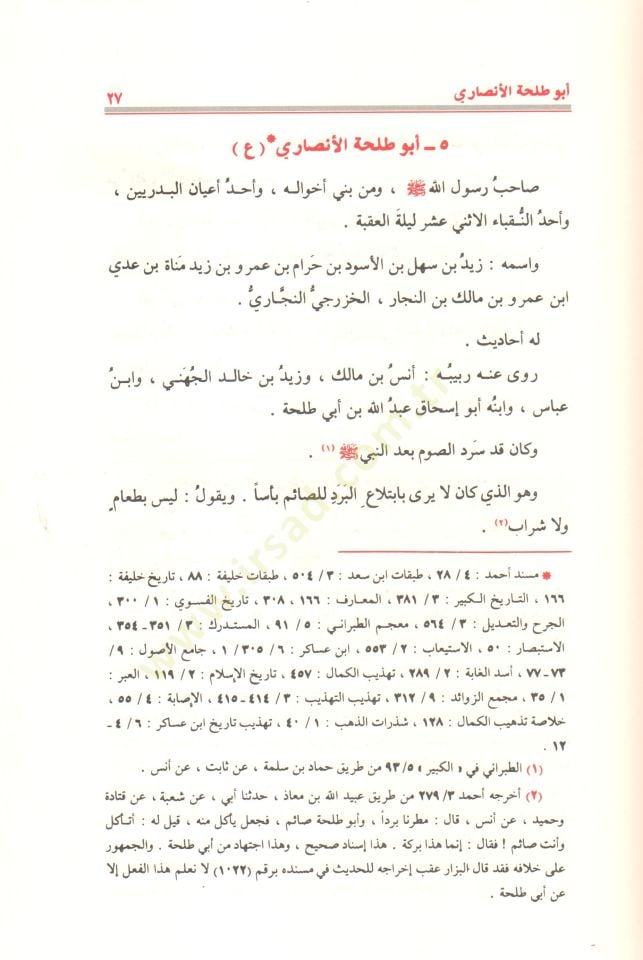 أبو طلحة الأنصاري ٢٧
٥ ـ أبو طلحة الأنصاري * ( ع )
صاحبُ رسول الله ﷺ ، ومن بني أخواله ، وأحدُ أعيان البدريين ،
وأحدُ النُّقباء الاثني عشر ليلةَ العقبة .
واسمه : زيدُ بن سهل بن الأسود بن حَرام بن عمرو بن زيد مَناة بن عدي
ابن عمرو بن مالك بن النجار ، الخزرجيُّ النجَّاريُّ .
له أحاديث .
روى عنه ربيبُه : أنسُ بن مالك ، وزيدُ بن خالد الجُهَني ، وابنُ
عباس ، وابنُه أبو إسحاق عبدُ الله بن أبي طلحة .
وكان قد سَرد الصوم بعد النبي ﷺ (١) .
وهو الذي كان لا يرى بابتلاعِ البَرَدِ للصائم بأساً . ويقولُ : ليس بطعامٍ
ولا شراب (٢) .
* مسند أحمد : ٤ / ٢٨ ، طبقات ابن سعد : ٣ / ٥٠٤ ، طبقات خليفة : ٨٨ ، تاريخ خليفة :
١٦٦ ، التاريخ الكبير : ٣ / ٣٨١ ، المعارف : ١٦٦ ، ٣٠٨ ، تاريخ الفسوي : ١ / ٣٠٠ ،
الجرح والتعديل : ٣ / ٥٦٤ ، معجم الطبراني : ٥ / ٩١ ، المستدرك : ٣ / ٣٥١ـ ٣٥٤ ،
الاستبصار : ٥٠ ، الاستيعاب : ٢ / ٥٥٣ ، ابن عساكر : ٦ / ٣٠٥ / ١ ، جامع الأصول : ٩ /
٧٣ـ ٧٧ ، أسد الغابة : ٢ / ٢٨٩ ، تهذيب الكمال : ٤٥٧ ، تاريخ الإسلام : ٢ / ١١٩ ، العبر :
١ / ٣٥ ، مجمع الزوائد : ٩ / ٣١٢ ، تهذيب التهذيب : ٣ / ٤١٤ـ ٤١٥ ، الإصابة : ٤ / ٥٥ ،
خلاصة تذهيب الكمال : ١٢٨ ، شذرات الذهب : ١ / ٤٠ ، تهذيب تاريخ ابن عساكر : ٦ / ٤ـ
١٢ .
(١) الطبراني في « الكبير » ٥/ ٩٣ من طريق حماد بن سلمة ، عن ثابت ، عن أنس .
(٢) أخرجه أحمد ٣/ ٢٧٩ من طريق عبيد الله بن معاذ ، حدثنا أبي ، عن شعبة ، عن قتادة
وحميد ، عن أنس ، قال : مطرنا برداً ، وأبو طلحة صائم ، فجعل يأكل منه ، قيل له : أتأكل
وأنت صائم ! فقال : إنما هذا بركة . هذا إسناد صحيح ، وهذا اجتهاد من أبي طلحة . والجمهور
على خلافه فقد قال البزار عقب إخراجه للحديث في مسنده برقم (١٠٢٢) لا نعلم هذا الفعل إلا
عن أبي طلحة .
www.irsad.com.tr